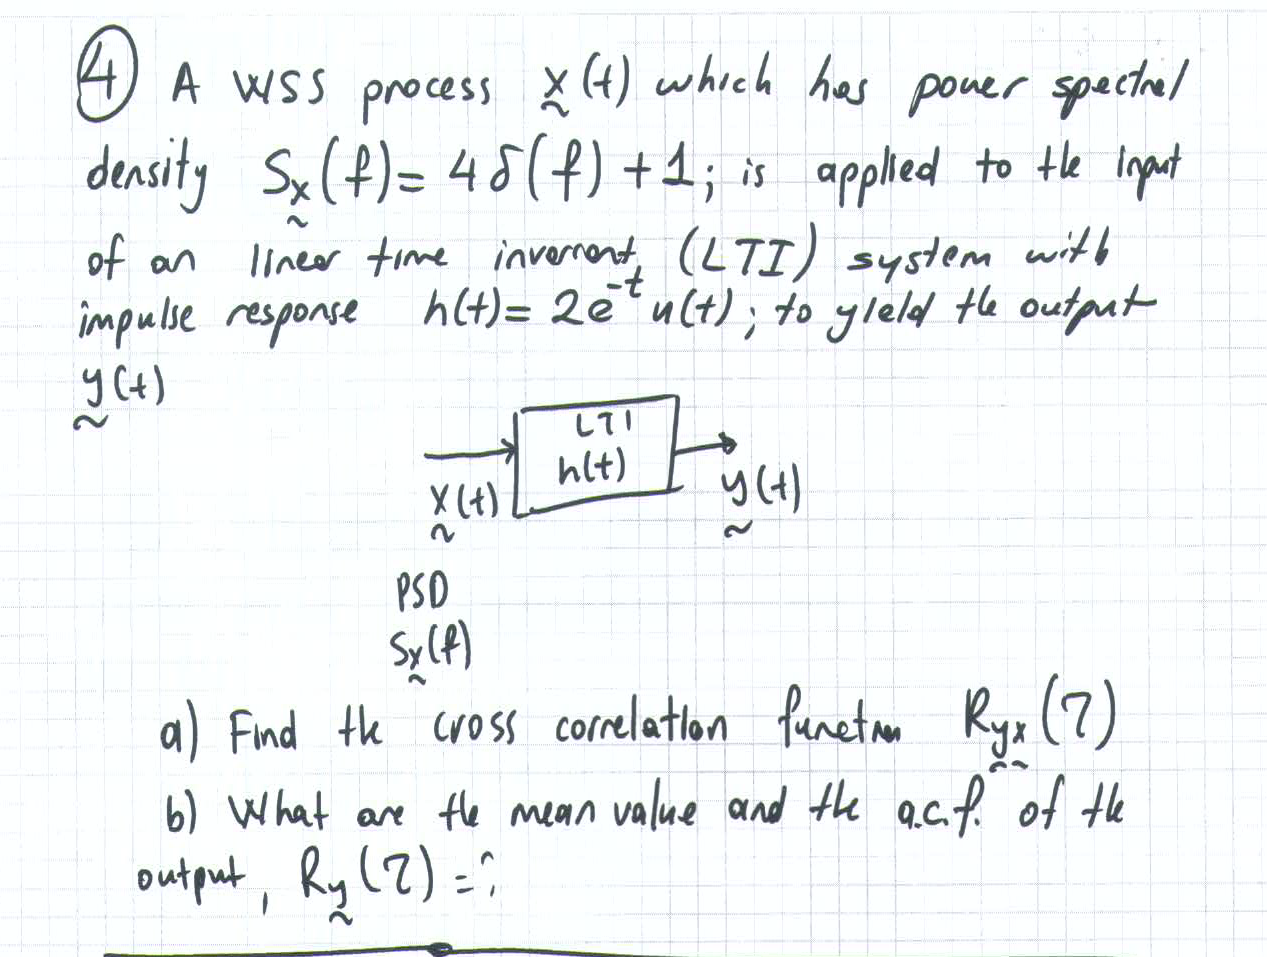 ④ A WSS process x(t) which has power spectral
density Sx(f) = 4δ(f) + 1; is applied to the input
of an linear time invariant (LTI) system with
impulse response h(t) = 2e^-t u(t); to yield the output
y(t)
LTI
h(t)
x(t)
y(t)
PSD
Sx(f)
a) Find the cross correlation function Ryx(τ)
b) What are the mean value and the a.c.f. of the
output, Ry(τ) = ?